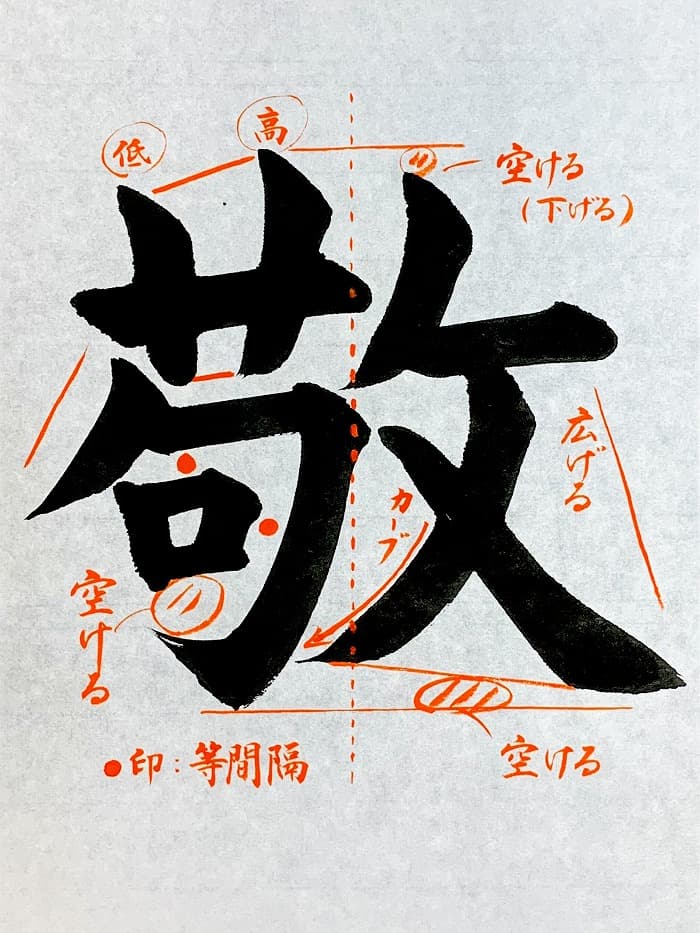 低
高
空ける
(下げる)
敬
広げる
カーブ
空ける
空ける
●印:等間隔